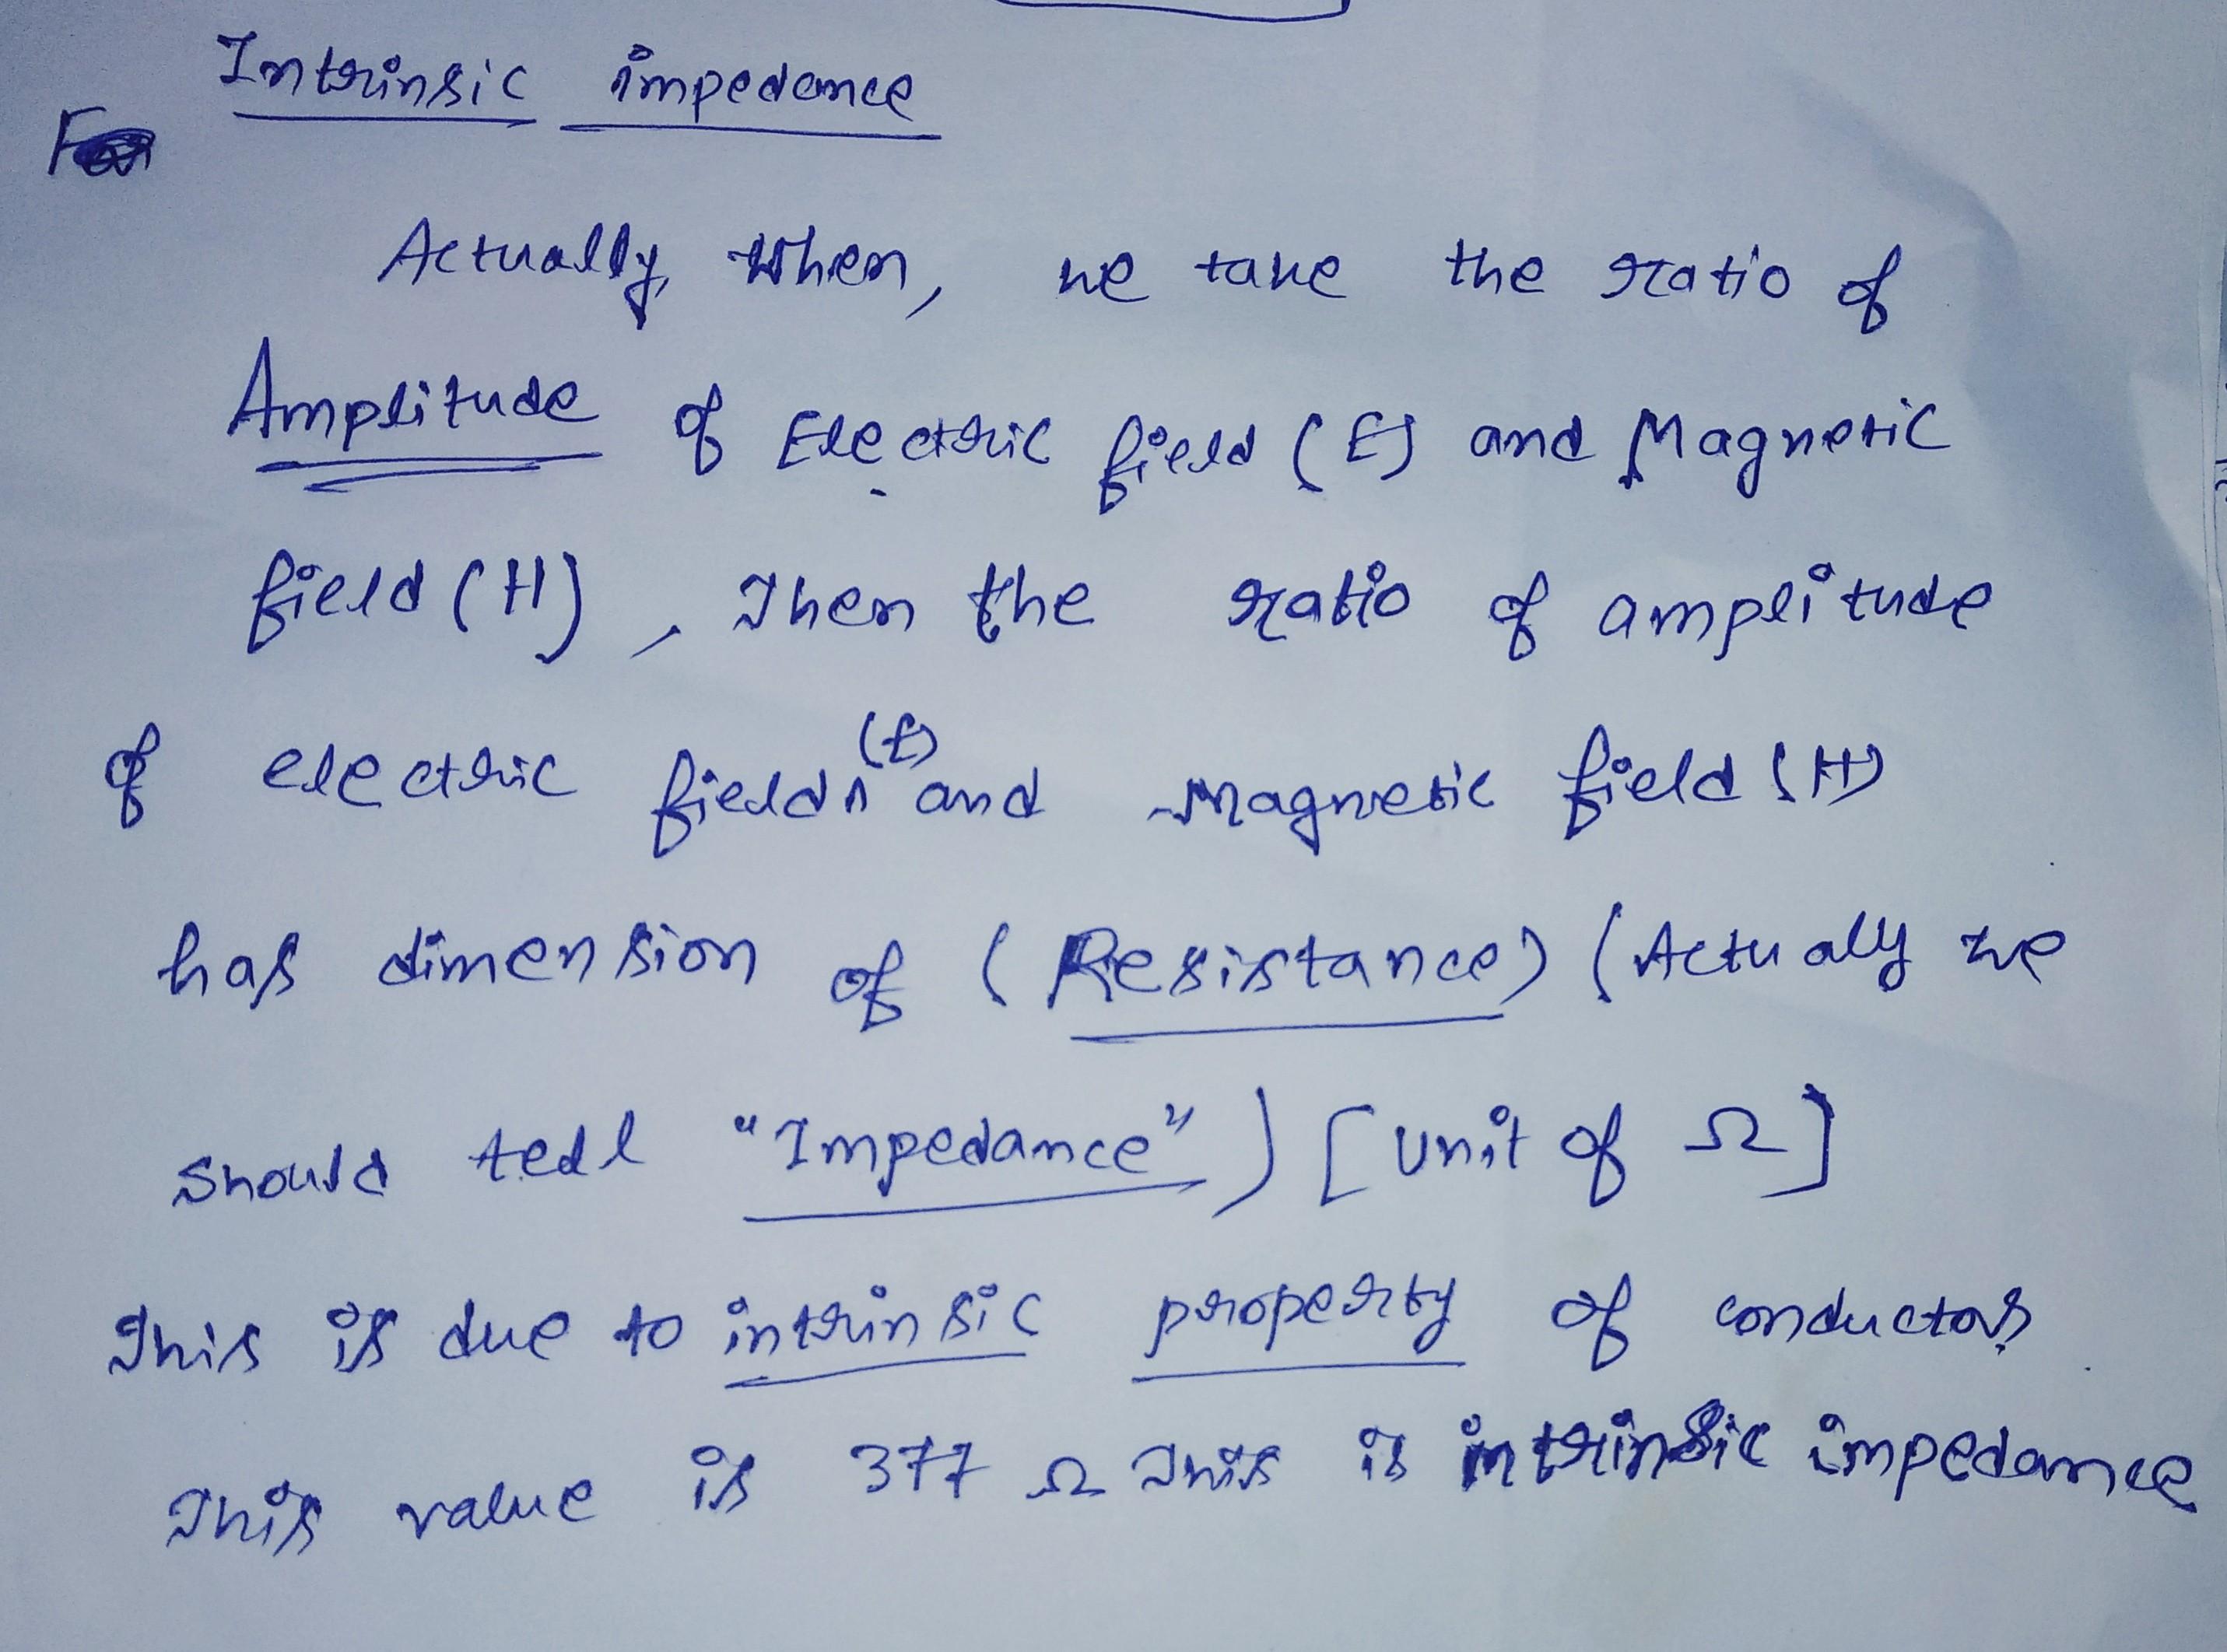 Intrinsic impedance
Actually, When, we take the ratio of
Amplitude of Electric field (E) and Magnetic
field (H), Then the ratio of amplitude
of electric field (E) and magnetic field (H)
has dimension of (Resistance) (Actually we
should tell "Impedance") [unit of Ω]
This is due to intrinsic property of conductors
This value is 377 Ω This is intrinsic impedance